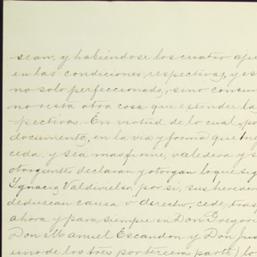 sean, y habiéndose los cuatro ape
en las condiciones respectivas, y es
no solo perfeccionado, sino consum
no resta otra cosa que estender la
pectivas. En virtud de lo cual, po
documento, en la via y forma que
ceda, y sea mas firme, valedera y s
otorgantes declaran y otorgan lo que sig
Ygnacio Valdivielso por si, sus heredero
deduzcan causa o derecho, cede, tras
ahora y para siempre en Don Gregor
Don Manuel Escandon y Don Jus
uno de los tres por tercera parte) lo